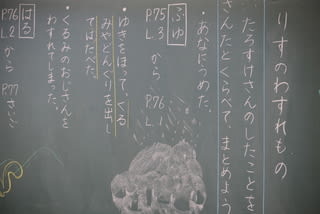 りすのわすれもの
たろすけさんのしたことを
さんたとくらべて、まとめよう
ふゆ
P75 L.3 から P76 L.1
・あなにつめた。
・ゆきをほって、くる
みやどんぐりを出し
てはたべた。
・くるみのおじさんを
わすれてしまった。
はる
P76 L2 から P77 さいご